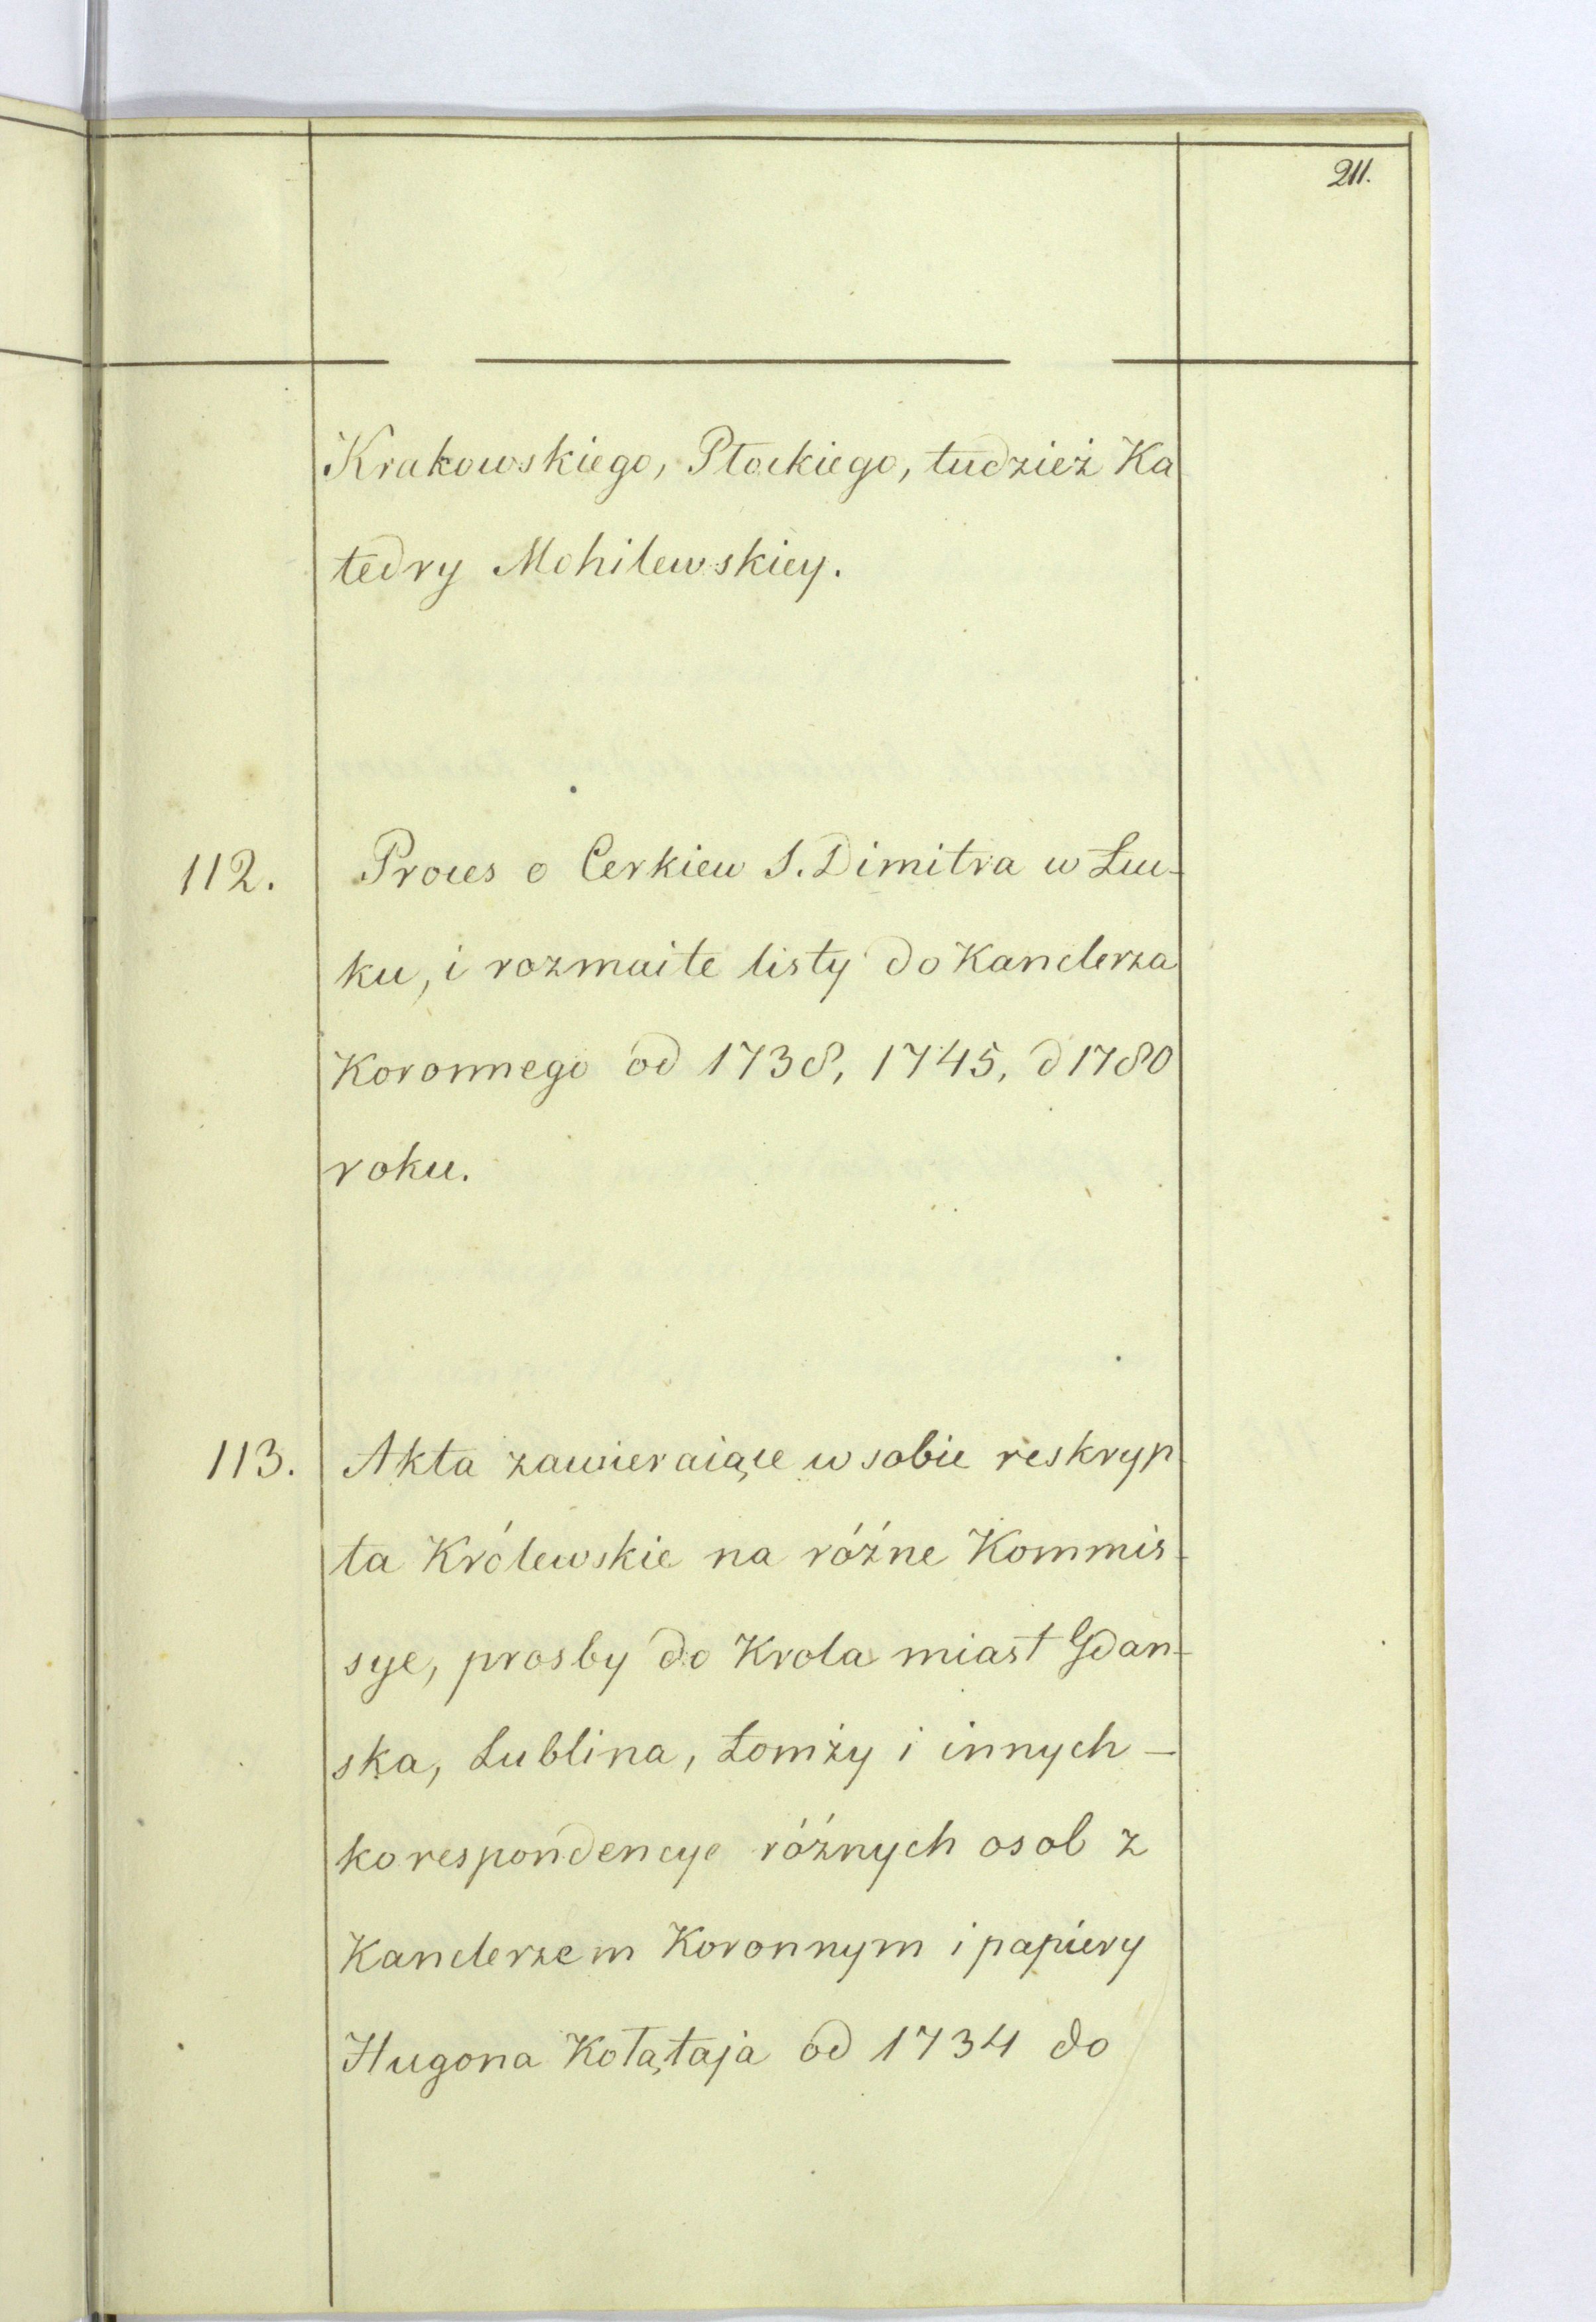 211.
Krakowskiego, Płockiego, tudzież Ka
tedry Mohilewskiey.
112. Proces o Cerkiew S. Dimitra w Łuc-
ku, i rozmaite listy do Kanclerza
Koronnego od 1738, 1745, d 1780
roku.
113. Akta zawieraiące w sobie reskryp-
ta Królewskie na różne Kommis-
sye, prosby do Krola miast Gdan-
ska, Lublina, Łomży i innych —
korespondencye różnych osob z
Kanclerzem Koronnym i papiery
Hugona Kołątaja od 1734 do